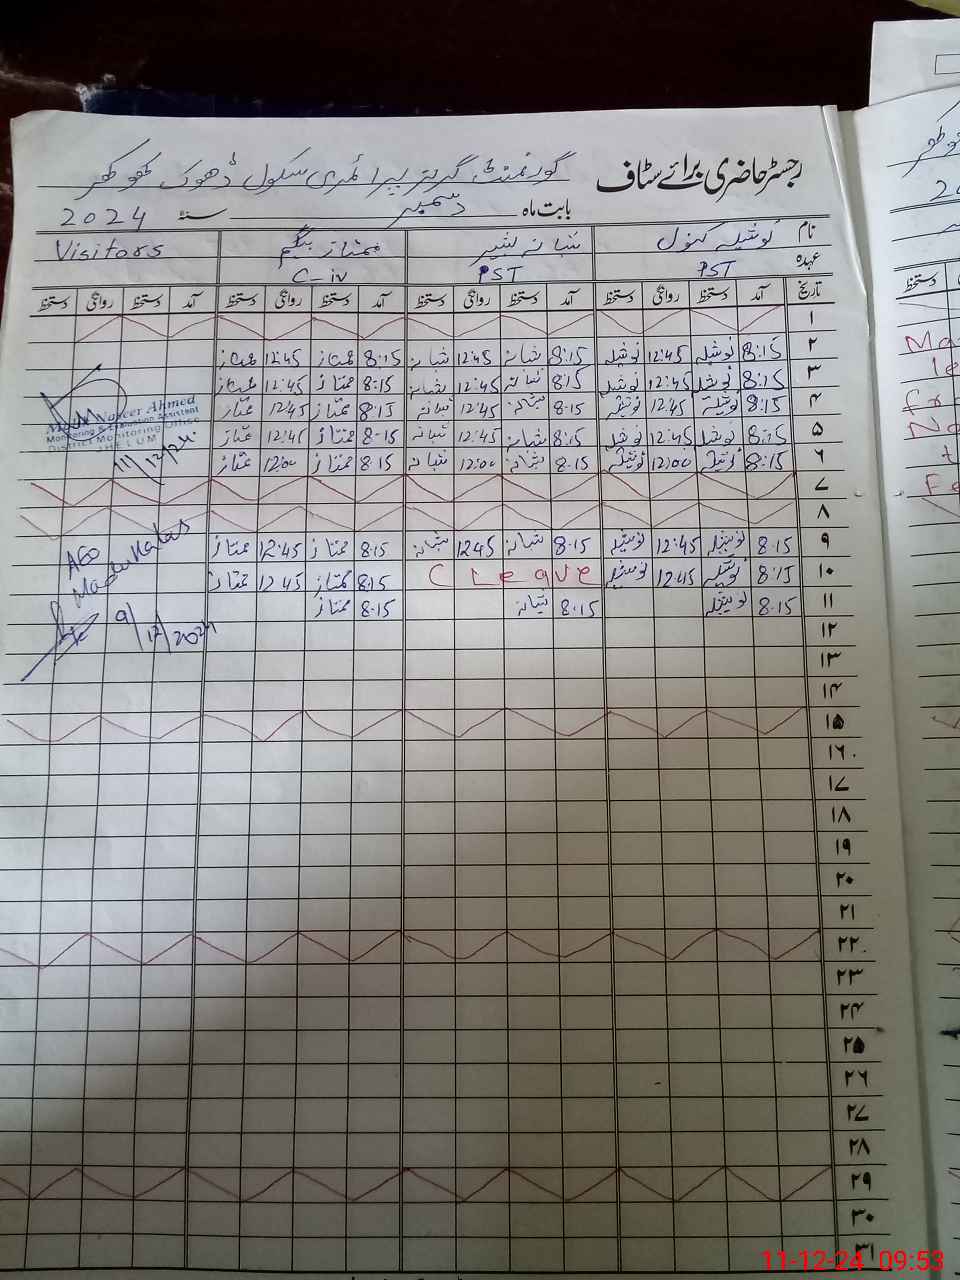 رجسٹر حاضری برائے سٹاف گورنمنٹ گرلز پرائمری سکول ڈھوک کھوکھر
بابت ماہ دسمبر سنہ 2024
نام نوشیلہ کنول شبانہ بشیر ممتاز بیگم Visitors
عہدہ PST PST C-iv
تاریخ آمد دستخط روانگی دستخط آمد دستخط روانگی دستخط آمد دستخط روانگی دستخط آمد دستخط روانگی دستخط
۱
۲ 8:15 نوشیلہ 12:45 نوشیلہ 8:15 شبانہ 12:45 شبانہ 8:15 ممتاز 12:45 ممتاز
۳ 8:15 نوشیلہ 12:45 نوشیلہ 8:15 شبانہ 12:45 شبانہ 8:15 ممتاز 12:45 ممتاز
۴ 8:15 نوشیلہ 12:45 نوشیلہ 8:15 شبانہ 12:45 شبانہ 8:15 ممتاز 12:45 ممتاز
۵ 8:15 نوشیلہ 12:45 نوشیلہ 8:15 شبانہ 12:45 شبانہ 8:15 ممتاز 12:45 ممتاز
۶ 8:15 نوشیلہ 12:00 نوشیلہ 8:15 شبانہ 12:00 شبانہ 8:15 ممتاز 12:00 ممتاز
Naseer Ahmed
Monitoring & Evaluation Assistant
District Monitoring Office
JHELUM
11/12/24
۷
۸
۹ 8:15 نوشیلہ 12:45 نوشیلہ 8:15 شبانہ 12:45 شبانہ 8:15 ممتاز 12:45 ممتاز
۱۰ 8:15 نوشیلہ 12:45 نوشیلہ C Leave 8:15 ممتاز 12:45 ممتاز
۱۱ 8:15 نوشیلہ 8:15 شبانہ 8:15 ممتاز
AEO
9/12/2024
۱۲
۱۳
۱۴
۱۵
۱۶
۱۷
۱۸
۱۹
۲۰
۲۱
۲۲
۲۳
۲۴
۲۵
۲۶
۲۷
۲۸
۲۹
۳۰
۳۱
11-12-24 09:53